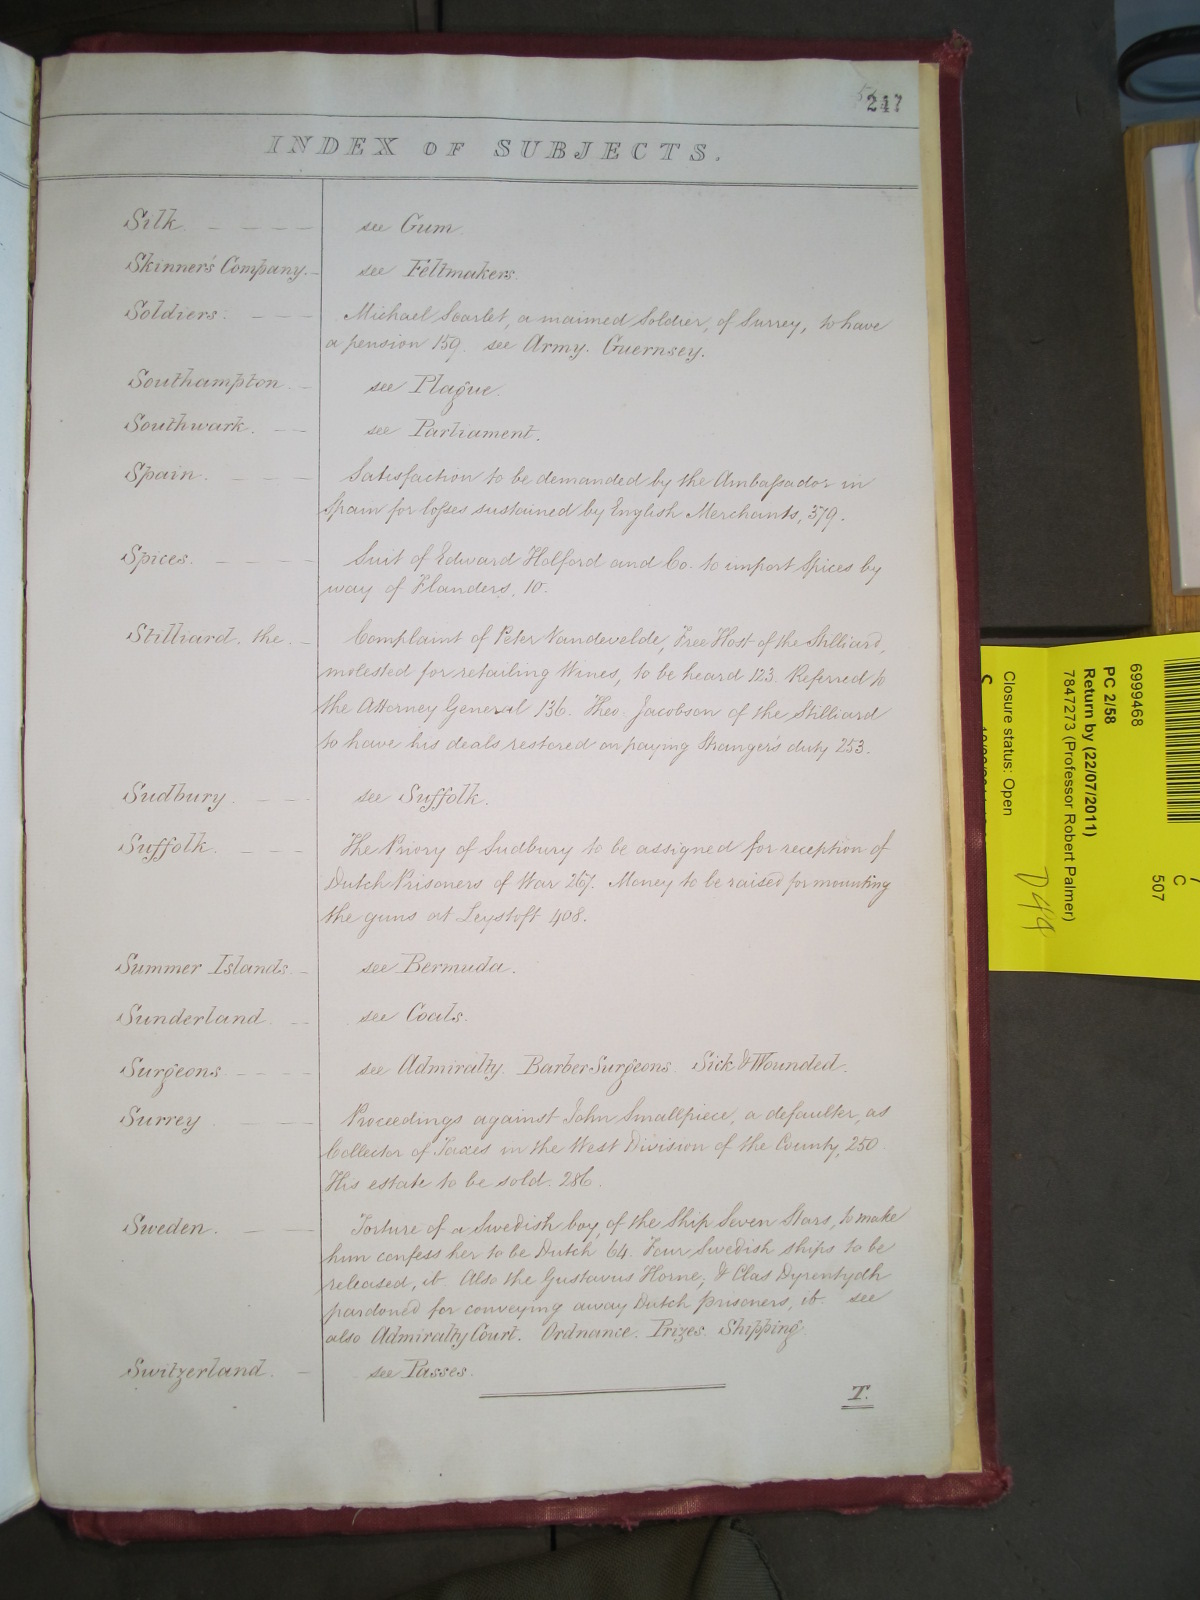 247
INDEX OF SUBJECTS.
Silk. - - - - see Gum.
Skinner's Company. - see Feltmakers.
Soldiers. - - - Michael Scarlet, a maimed Soldier, of Surrey, to have
a pension 159. see Army. Guernsey.
Southampton. - see Plague.
Southwark. - - see Parliament.
Spain. - - - Satisfaction to be demanded by the Ambaſsador in
Spain for loſses sustained by English Merchants, 379.
Spices. - - - - Suit of Edward Holford and Co. to import Spices by
way of Flanders, 10.
Stilliard, the. - Complaint of Peter Vandevelde, Free Host of the Stilliard,
molested for retailing Wines, to be heard 123. Referred to
the Attorney General 136. Theo. Jacobson of the Stilliard
to have his deals restored on paying Stranger's duty 253.
Sudbury. - - see Suffolk.
Suffolk. - - - The Priory of Sudbury to be assigned for reception of
Dutch Prisoners of War 267. Money to be raised for mounting
the guns at Leystoft 408.
Summer Islands. - see Bermuda.
Sunderland. - - see Coals.
Surgeons - - - - see Admiralty. Barber-Surgeons. Sick & Wounded.
Surrey - - - Proceedings against John Smallpiece, a defaulter, as
Collector of Taxes in the West Division of the County, 250
His estate to be sold. 286.
Sweden. - - Torture of a Swedish boy, of the Ship Seven Stars, to make
him confess her to be Dutch 64. Four Swedish ships to be
released, ib. Also the Gustavus Horne; & Clas Dyrentydh
pardoned for conveying away Dutch prisoners, ib. see
also Admiralty Court. Ordnance. Prizes. Shipping.
Switzerland. - see Passes.
T.
6999468
PC 2/58
Return by (22/07/2011)
7847273 (Professor Robert Palmer)
Closure status: Open
C
507